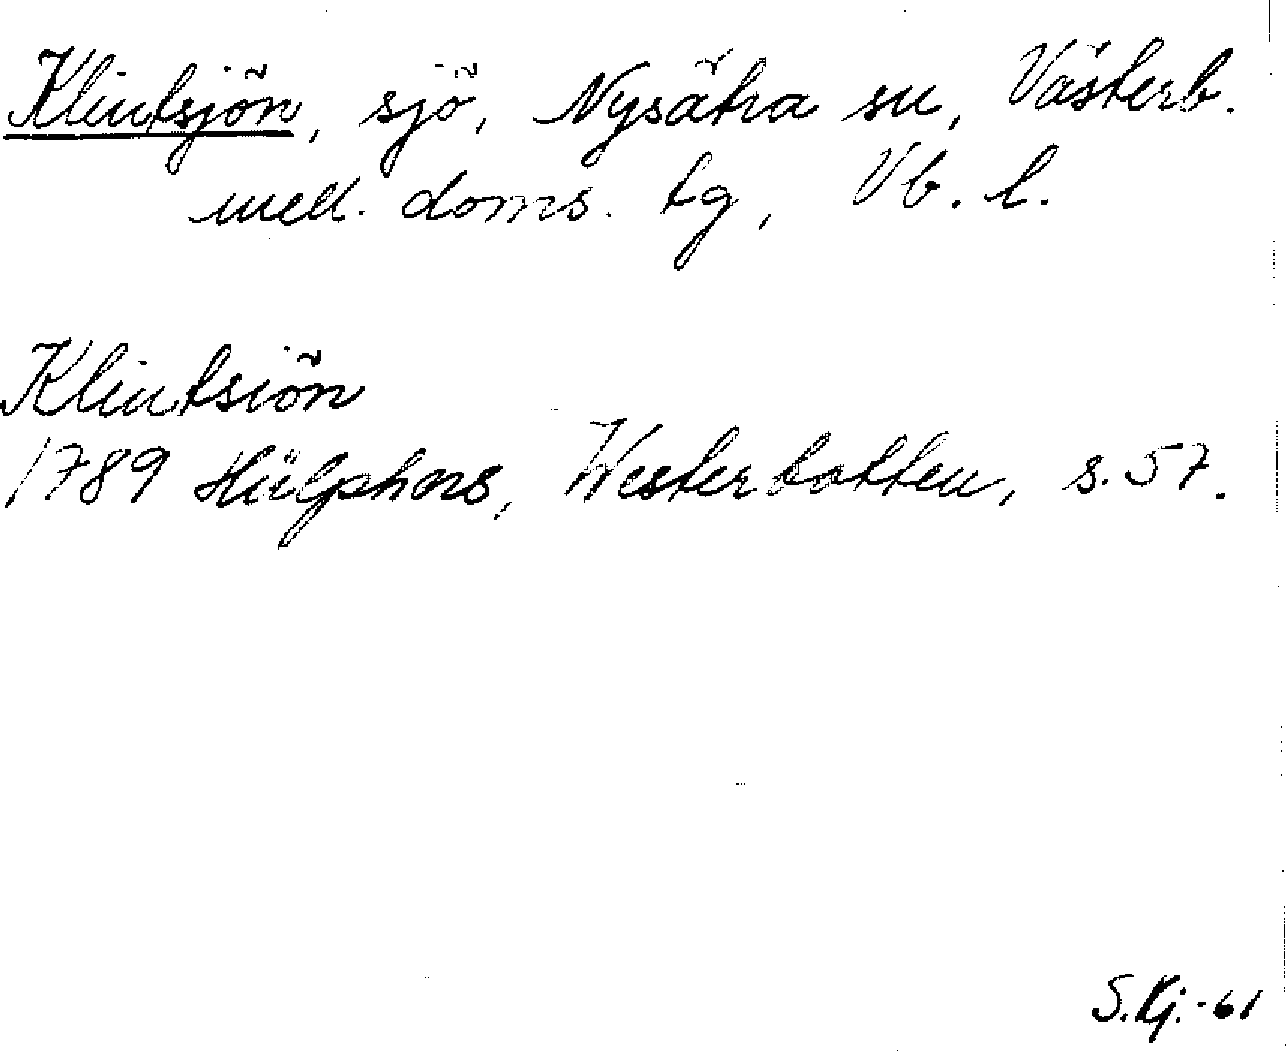 Klintsjön, sjö, Nysätra sn, Västerb.
mell. doms. tg, Vb. l.
Klintsiön
1789 Hülphers, Westerbotten, s. 57.
S. Kj. -61